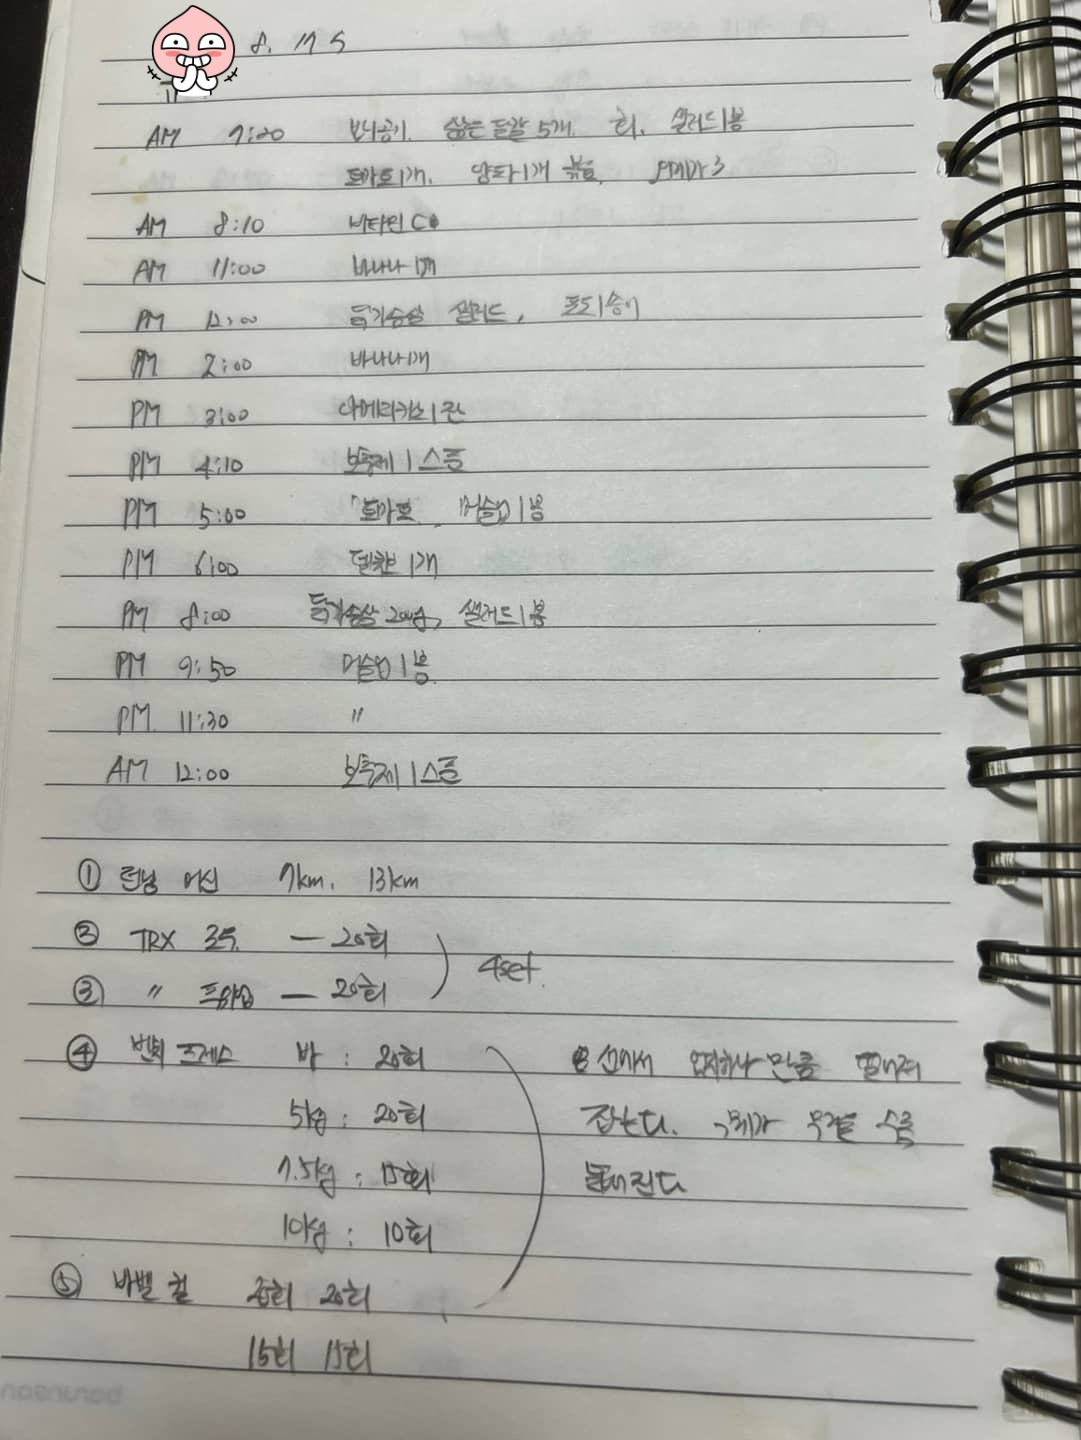 8.
AM 7:20 삶은 달걀 5개. 회. 샐러드 1봉
토마토 1개. 양파 1개 볶음.
AM 8:10 비타민 C
AM 11:00 바나나 1개
PM 12:00 닭가슴살 샐러드, 포도 1송이
PM 2:00 바나나 1개
PM 3:00 아메리카노 1잔
PM 4:10 보충제 1스픈
PM 5:00 토마토, 머슬업 1봉
PM 6:00 1개
PM 8:00 닭가슴살 200g, 샐러드 1봉
PM 9:50 머슬업 1봉
PM 11:30 〃
AM 12:00 보충제 1스픈
① 런닝 머신 7km, 13km
② TRX 로우 — 20회
③ 〃 — 20회
4set
④ 벤치 프레스 바 : 20회
선에서 엄지하나 만큼 떨어져
5kg : 20회
잡는다. 무거울 수록
7.5kg : 15회
10kg : 10회
⑤ 바벨 컬 20회 20회
15회 15회